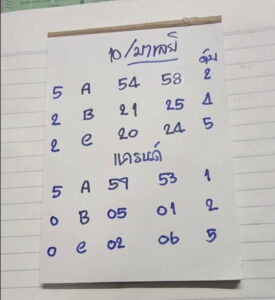 10/มาเลย์
ดับ
5 A 54 58 2
2 B 21 25 4
2 C 20 24 5
แครนด์
5 A 59 53 1
0 B 05 01 2
0 C 02 06 5